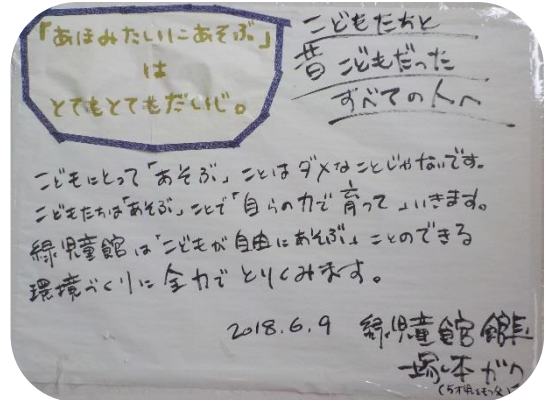 「あほみたいにあそぶ」
は
とてもとてもだいじ。
こどもたちと
昔こどもだった
すべての人へ
こどもにとって「あそぶ」ことはダメなことじゃないです。
こどもたちは「あそぶ」ことで「自らの力で育って」いきます。
緑児童館は「こどもが自由にあそぶ」ことのできる
環境づくりに全力でとりくみます。
2018.6.9 緑児童館館長
塚本ガク